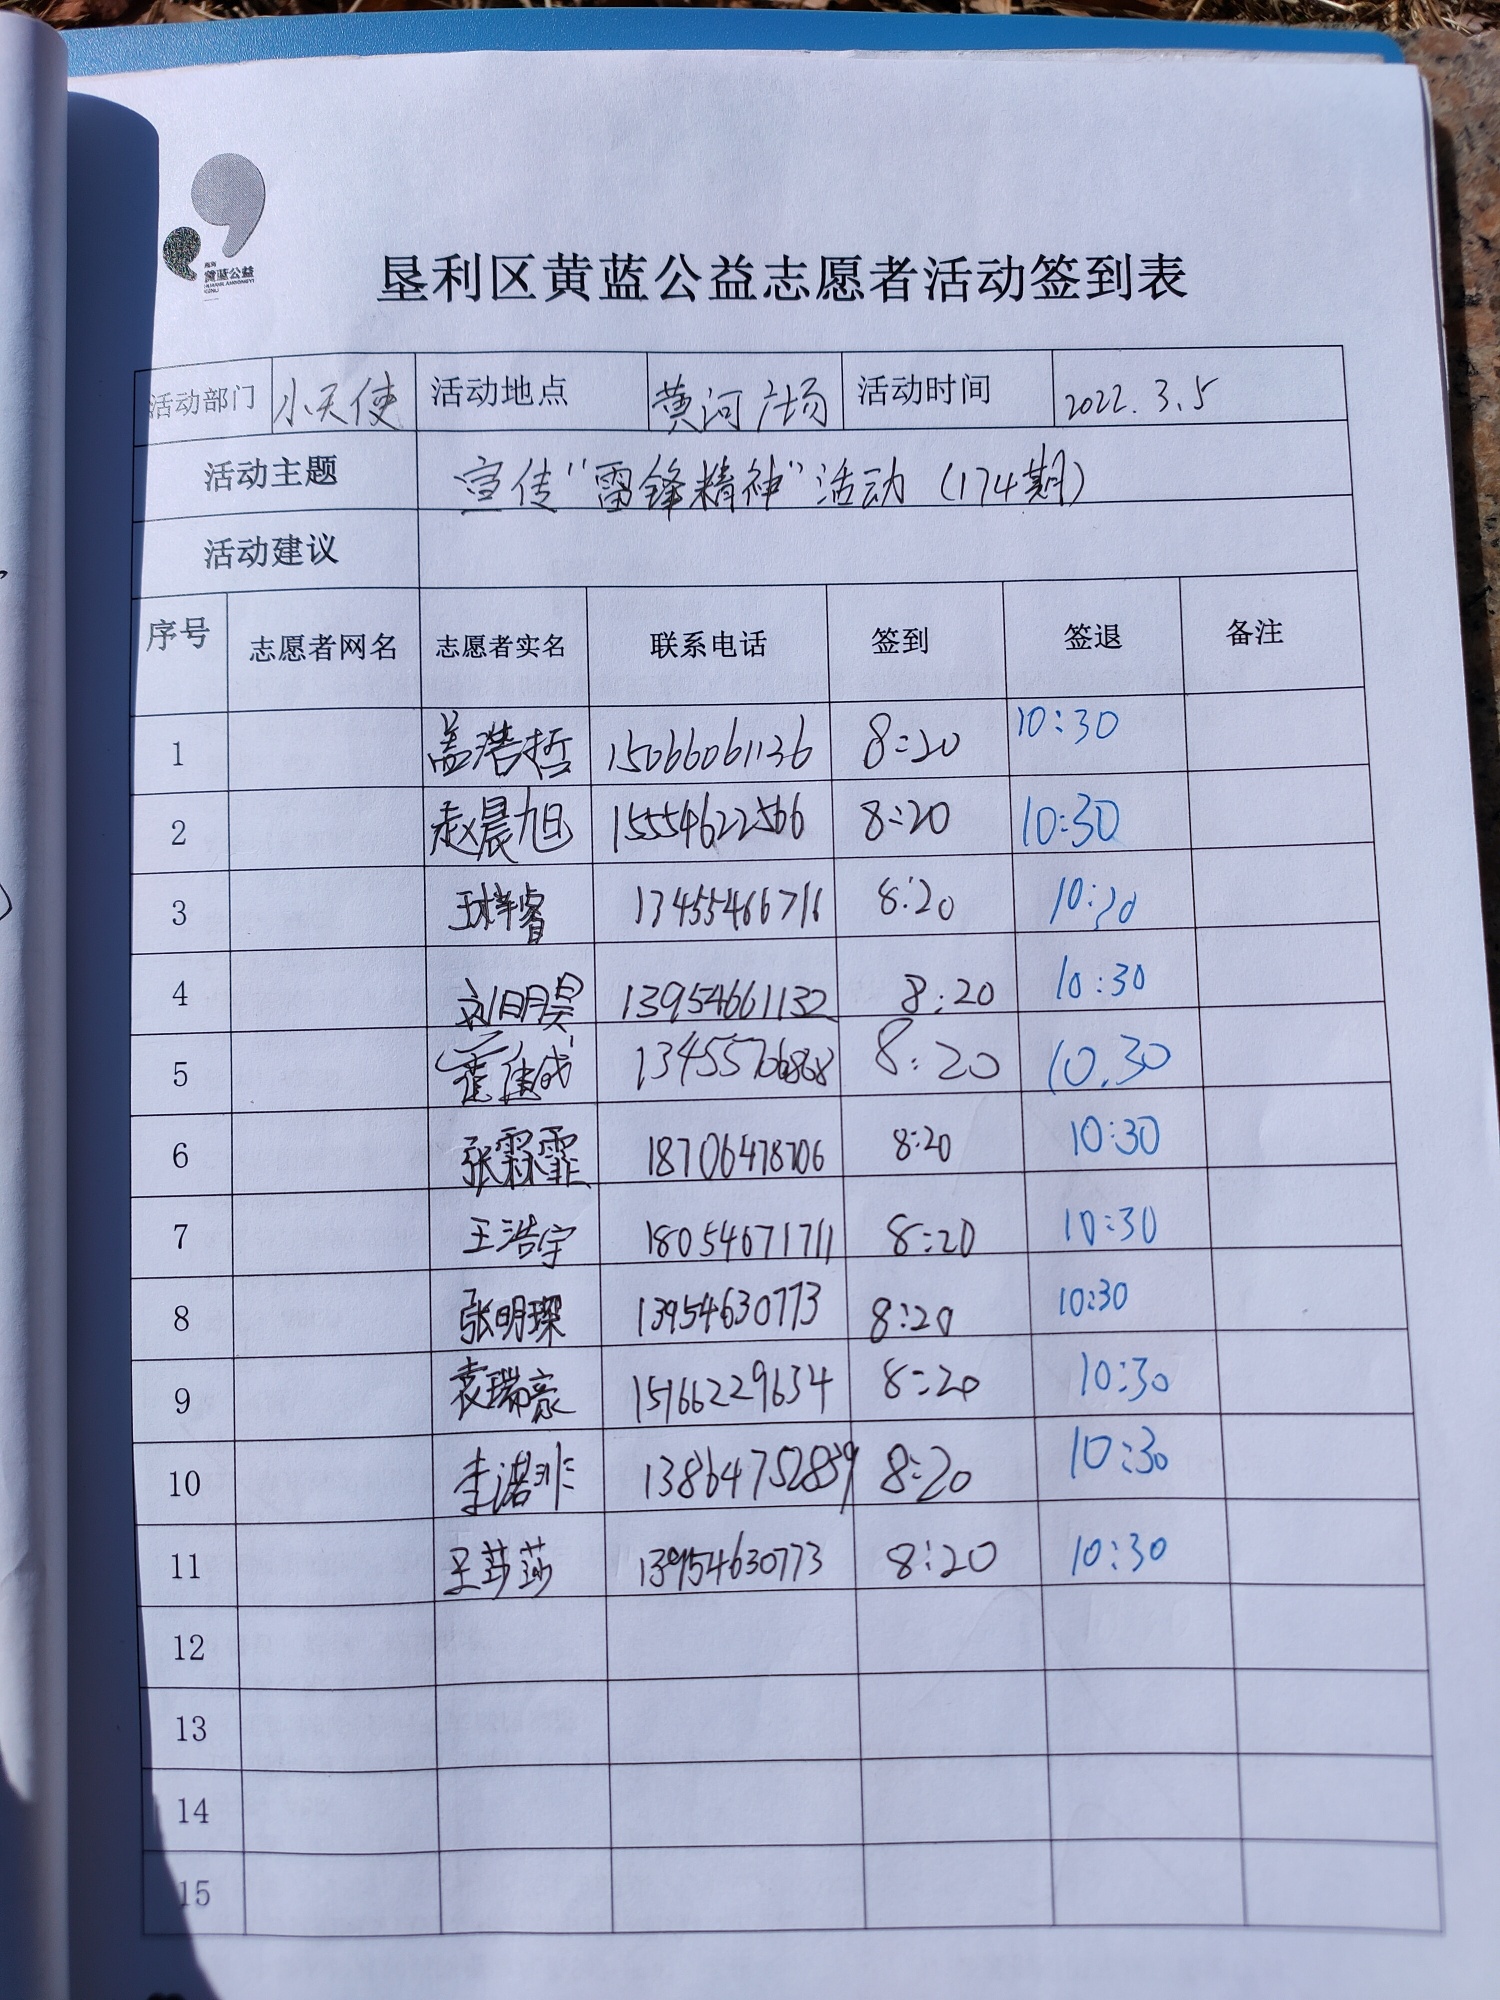 黄蓝公益
垦利区黄蓝公益志愿者活动签到表
活动部门 小天使 活动地点 黄河广场 活动时间 2022.3.5
活动主题 宣传“雷锋精神”活动(174期)
活动建议
序号 志愿者网名 志愿者实名 联系电话 签到 签退 备注
1 盖浩哲 15066061136 8:20 10:30
2 赵晨旭 15554622566 8:20 10:30
3 王梓睿 13455466716 8:20 10:30
4 刘明昊 13954661132 8:20 10:30
5 8:20 10.30
6 张霖霏 18706478706 8:20 10:30
7 王浩宇 18054671711 8:20 10:30
8 张明琛 13954630773 8:20 10:30
9 袁瑞豪 15166229634 8:20 10:30
10 李诺非 8:20 10:30
11 王莎莎 13954630773 8:20 10:30
12
13
14
15